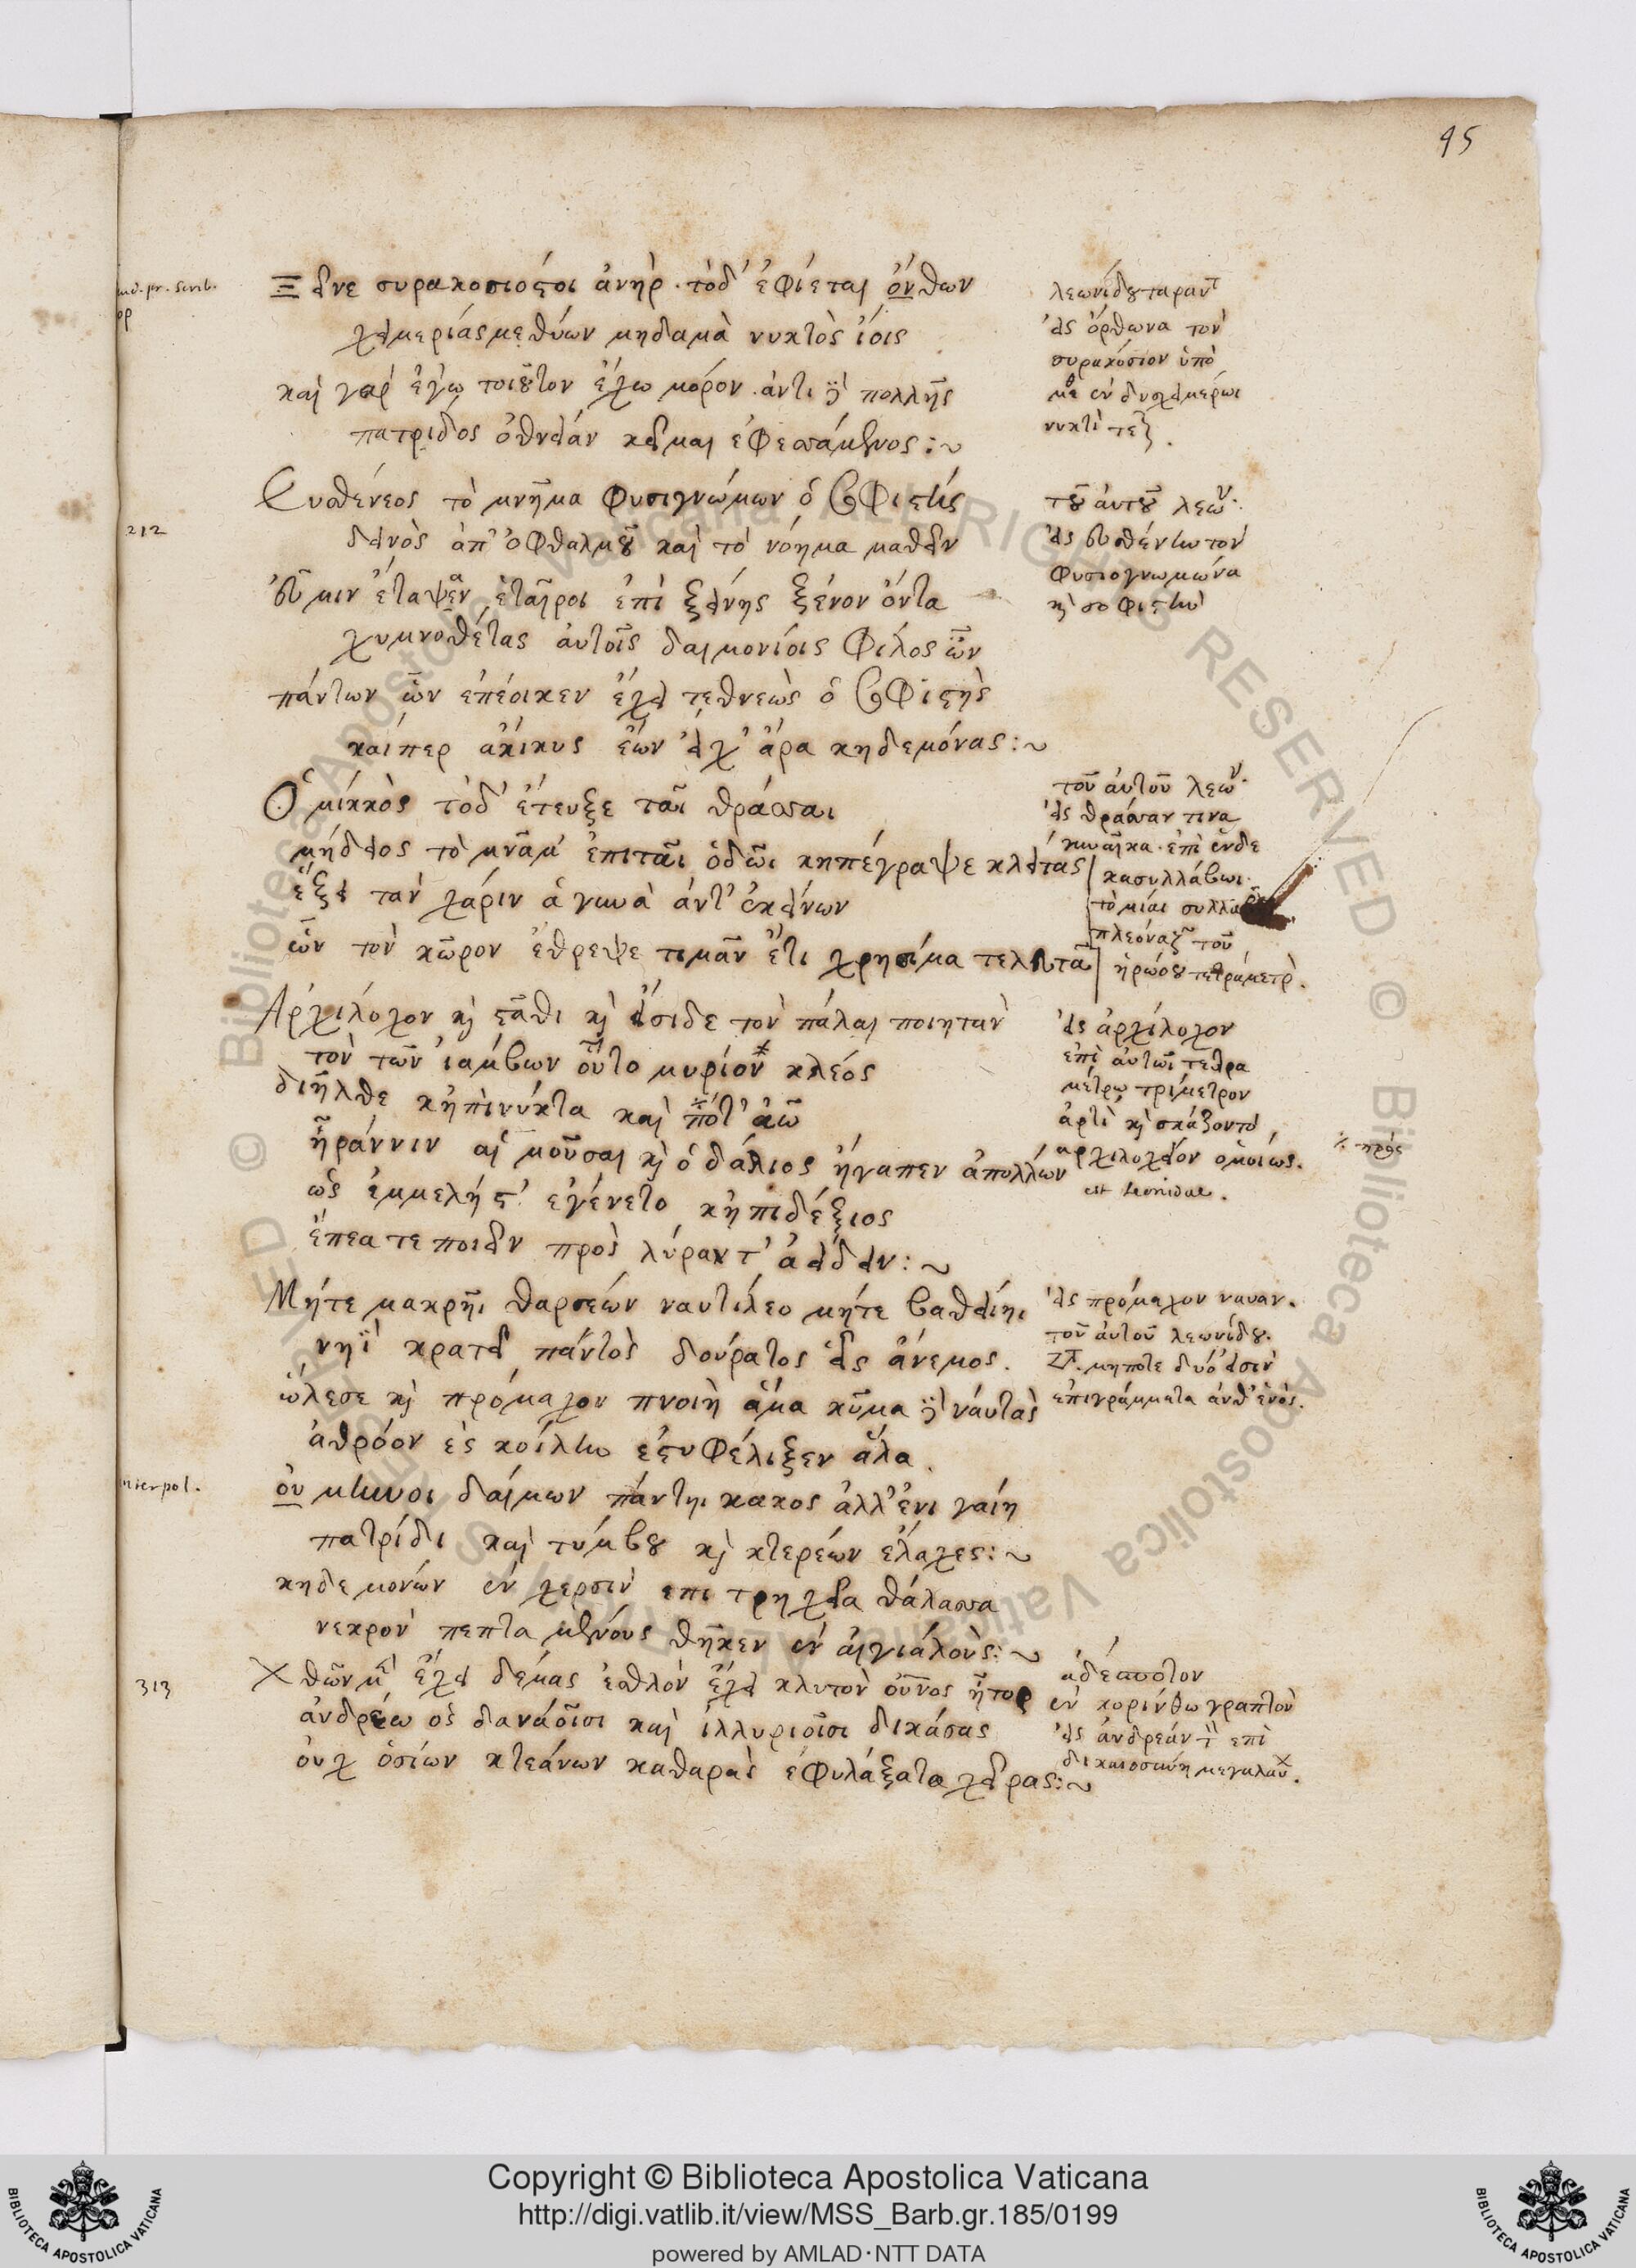 95
Ξεῖνε συρακοσιόςτοι ἀνὴρ. τὸδ' ἐφίεται ὄνθων
χειμερίας μεθύων μηδαμὰ νυκτὸς ἴοις
καὶ γαρ ἐγὼ τοιοῦτον ἔχω μόρον. ἀντι δὲ πολλῆς
πατριδος ὀθνείαν κεῖμαι ἐφεσσάμενος:~
λεωνίδου ταραντ
εἰς ὄρθωνα τον
συρακόσιον ὑπὸ
ἐν δυσχειμέρωι
νυκτὶ
Ευσθένεος τὸ μνῆμα φυσιγνώμων ὁ σοφιστής
δεινὸς ἀπ' ὀφθαλμοῦ καὶ τὸ νόημα μαθεῖν
εὖ μιν ἔταψαν ἑταῖροι ἐπὶ ξείνης ξένον ὄντα
χυμνοθέτας αὐτοῖς δαιμονίοις φίλος ὢν
πάντων ὧν ἐπέοικεν ἔχει τεθνεὼς ὁ σοφιστὴς
καίπερ ἄκικυς ἐὼν εἶχ' ἄρα κηδεμόνας:~
212
τοῦ αὐτοῦ λεων.
εἰς εὐσθένην τον
φυσιογνωμωνα
κὶ σοφιστὴν
Ὁ μικκὸς τὸδ' ἔτευξε τᾶι θράσσαι
μήδειος τὸ μνᾶμ' ἐπιτᾶι ὁδῶι κηπέγραψε κλείτας
ἕξει τὰν χάριν ἁ γυνὰ ἀντ' ἐκείνων
ὧν τὸν κῶρον ἔθρεψε τιμᾶν ἔτι χρησίμα τελευτᾶ
τοῦ αὐτοῦ λεων.
εἰς θράσσαν τινα
γυναῖκα. ἐπὶ ἑνδε
κασυλλάβωι.
τὸ μίαι
πλεόναζ τοῦ
ἡρώου τετράμετρ.
Ἀρχιλόχον κὶ στᾶθι κὶ εἴσιδε τὸν πάλαι ποιητὰν
τὸν τῶν ἰάμβων οὗτο μυρίον κλέος
διῆλθε κἠπὶ νύκτα καὶ ποτ' ἀῶ
ἦράννιν αἱ μοῦσαι κὶ ὁ δάλιος ἠγαπεν ἀπολλων
ὡς ἐμμελής τ' ἐγένετο κἠπιδέξιος
ἔπεα τε ποιεῖν προς λύραν τ' ἀείδειν:~
εἰς ἀρχίλοχον
ἐπὶ αὐτῶι τετρα
μέτρω τρίμετρον
ἀρτὶ κὶ σκάζοντα
αρχιλοχεῖον ὁμοίως.
est leonidae.
πρὸς
Μήτε μακρῆι θαρσέων ναυτίλεο μήτε βαθείηι
νηῒ κρατεῖ παντὸς δούρατος εἷς ἄνεμος.
ὤλεσε κὶ πρόμαχον πνοιὴ ἅμα κῦμα δὲ ναύτας
ἀθρόον ἐς κοίλην ἐστυφέλιξεν ἅλα.
οὐ μήν οι δαίμων πάντηι κακος ἀλλ' ἐνι γαίη
πατρίδι καὶ τύμβου κὶ κτερέων ἔλαχες:~
κηδεμονων ἐν χερσὶν επι τρηχεῖα θάλασσα
νεκρον πεπταμένους θῆκεν ἐν αἰγιάλους:~
interpol.
εἰς πρόμαχον ναυαγ.
τοῦ αὐτοῦ λεωνίδου.
ζτ. μηποτε δυό εἰσιν
ἐπιγράμματα ἀνθ' ἑνός.
Χθὼν μὲν ἔχει δέμας ἐσθλόν ἔχει κλυτὸν οὖνος ἦτορ
ἀνδρέω ὃς δαναοῖσι καὶ ἰλλυριοῖσι δικάσας
οὐχ ὁσίων κτεάνων καθαρὰς ἐφυλάξατο χεῖρας:~
313
ἀδέσποτον
ἐν κορίνθω γραπτὸν
εἰς ἀνδρεάν ἐπὶ
δικαιοσύνη
Copyright © Biblioteca Apostolica Vaticana
http://digi.vatlib.it/view/MSS_Barb.gr.185/0199
powered by AMLAD·NTT DATA
BIBLIOTECA APOSTOLICA VATICANA
BIBLIOTECA APOSTOLICA VATICANA